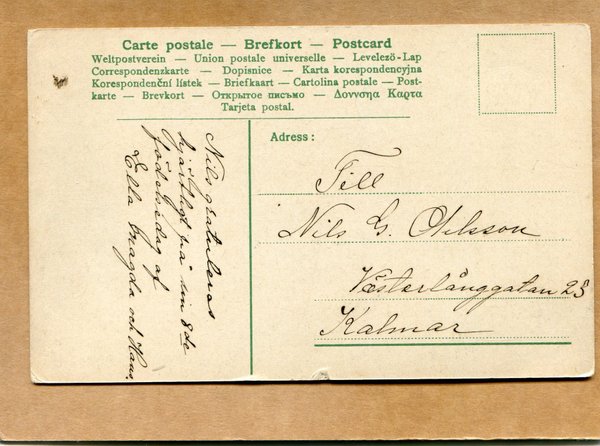 Carte postale — Brefkort — Postcard
Weltpostverein — Union postale universelle — Levelező-Lap
Correspondenzkarte — Dopisnice — Karta korespondencyjna
Korespondenční lístek — Briefkaart — Cartolina postale — Post-
karte — Brevkort — Открытое письмо — Δοννσηα Καρτα
Tarjeta postal.
Nils gratuleras
hjärtligt på sin 8de
födelsedag af
Ella Magda och Hans.
Adress:
Till
Nils G. Ohlsson
Västerlånggatan 23
Kalmar